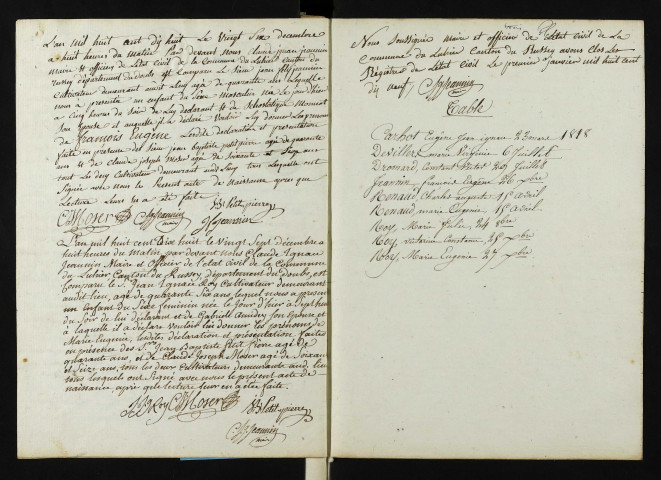 L'an mil huit cent dix huit le vingt six decembre
a huit heures du matin Pard devant nous claude ignace jeannin
maire & officier de l'etat civil de la commune du Luhier canton du
russey departement du doubs est comparu le Sieur jean felix jeannin
cultivateur demeurant audit Lieu agé de quarante ans Lequelle
nous a presenté un enfant du Sexe masculin née Le jour d'hier
a cinq heures du soir de Luy declarant & de Scholastique Monnot
Son epouse et auquelle il a declaré Vouloir Luy donner Les prenoms
de François Eugène Lesdite declaration et presentation
faite en presence des Sieur jean baptiste petit pierre agé de quarante
ans & de claude joseph Moser agé de Soixante & Seize ans
tout les deux cultivateur demeurant audit Lieu tous Lesquelle ont
Signée avec nous le present acte de Naissance apres que
Lecture Leur en a été faite.
C J Moser Jeannin J f jeannin JB Petitpierre
L'an mil huit cent dix huit le vingt Sept décembre a
huit heures du matin par devant nous Claude Ignace
Jeannin Maire et Officier de l'état Civil de la Commune
du Luhier Canton du Russey, département du doubs, est
Comparu le S. Jean Ignace Roy Cultivateur demeurant
audit lieu, agé de quarante Six ans, lequel nous a présenté
un Enfant du Sexe feminin née le Jour d'hier à Sept heures
du Soir de lui déclarant et de Gabriele Amidey son Epouse et
à laquelle il a déclaré vouloir lui donner les prénoms de
Marie Eugenie, lesdites déclaration et présentation faites
en présence des Srs Jean Baptiste Petit Pierre agé de
quarante ans, et de Claude Joseph Moser agé de Soixante
et Seize ans, tous les deux Cultivateurs demeurants aud. lieu
tous lesquels ont Signé avec nous le présent acte de
naissance après que lecture leur en a été faite.
JJ Roy C J Moser JB Petitpierre
Jeannin
Nous Soussignée maire et officier de L'Etat civil de La
Commune du Luhier Canton du Russey avons clos Les
Régistres de L'état civil Le premier janvier mil huit cent
dix neuf Jeannin
Table
Eugène jean ignace 23 mars 1818
Devillers 6 juillet
Dromard 24 juillet
Jeannin françois Eugène 26 xbre
Renaud Charles auguste 15 avril
Renaud marie Eugenie 15 avril
Roy, Marie Julie 24 9bre
Roy, Constant 25 xbre
Roy, Marie Eugenie 27 xbre